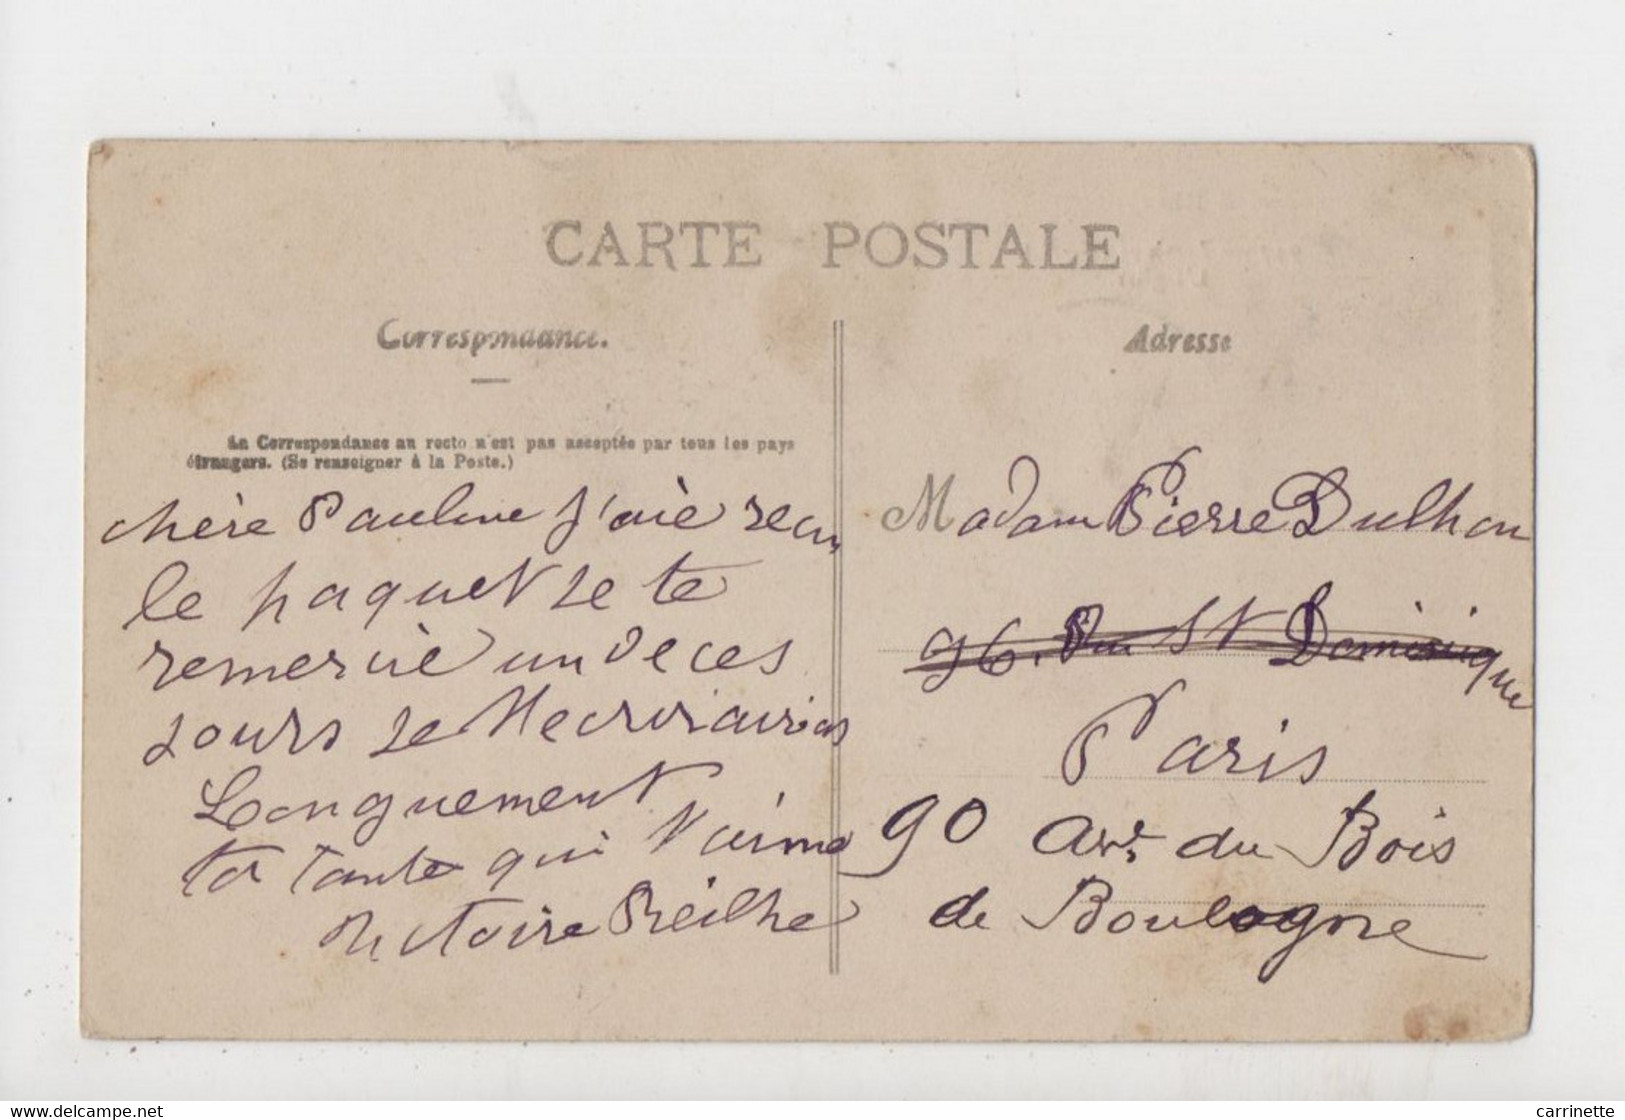 CARTE POSTALE
Correspondance.
La Correspondance au recto n'est pas acceptée par tous les pays
étrangers. (Se renseigner à la Poste.)
chère Pauline J'aiè recu
le paquet Je te
remercie un de ces
Jours Je
Longuement
ta Tante qui t'aime
Victoire
Adresse
Madam Pierre Dulhon
96. Rue St Dominique
Paris
90 Av. du Bois
de Boulogne
carrinette